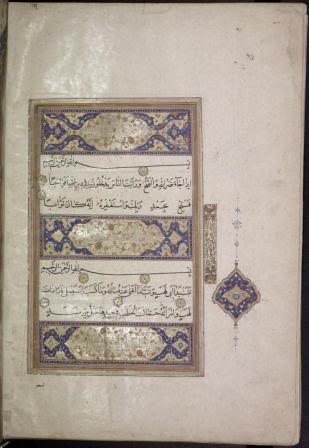 بسم الله الرحمن الرحيم
اذا جاء نصر الله والفتح ورأيت الناس يدخلون في دين الله افواجا
فسبح بحمد ربك واستغفره انه كان توابا
بسم الله الرحمن الرحيم
تبت يدا ابي لهب وتب ما اغنى عنه ماله وما كسب سيصلى نارا ذات
لهب وامرأته حمالة الحطب في جيدها حبل من مسد